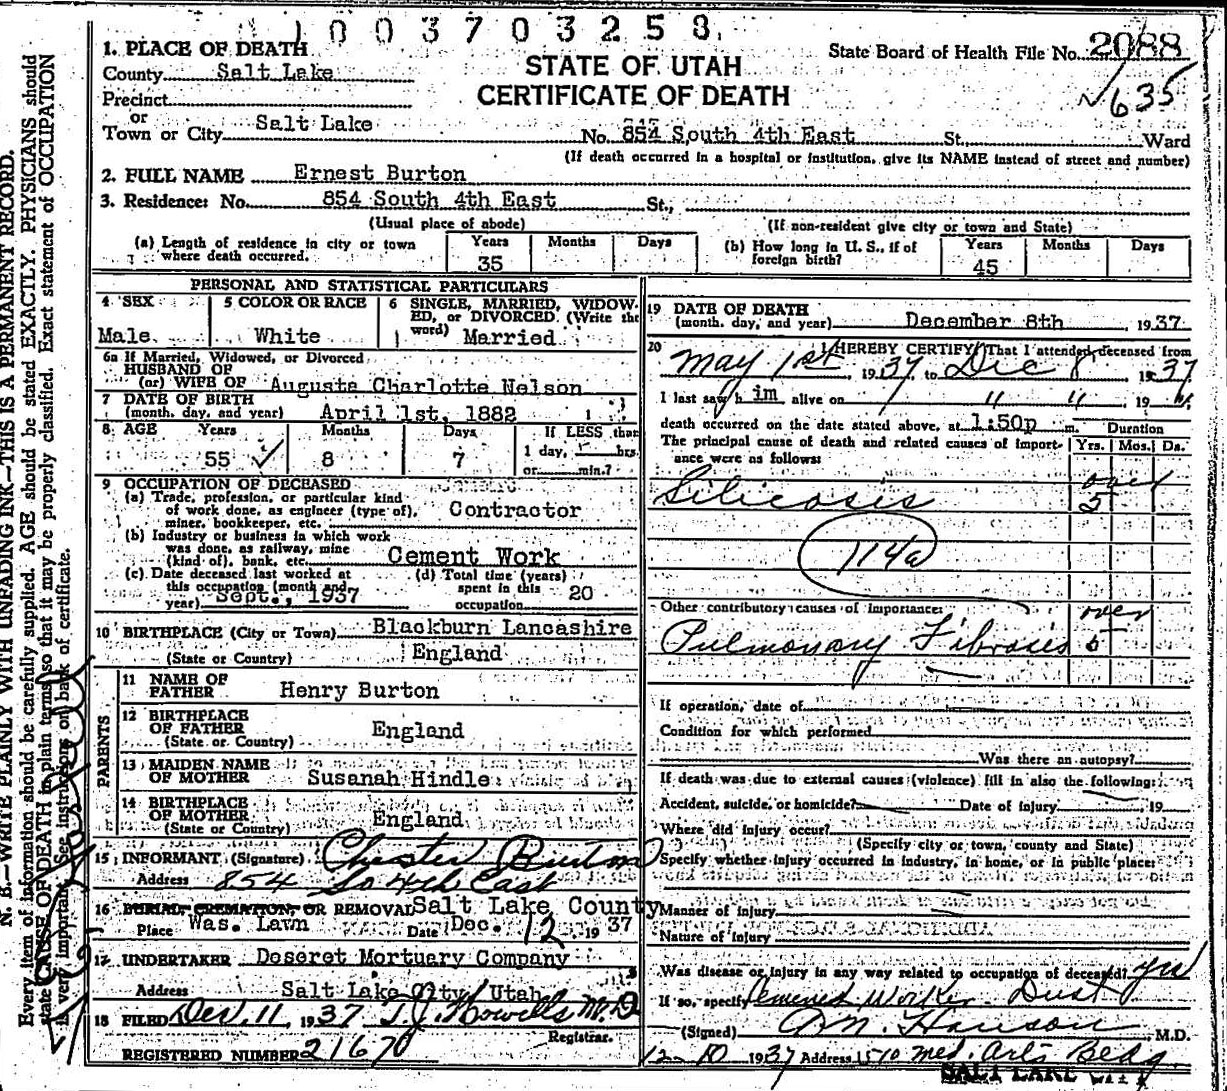 1003703258
1. PLACE OF DEATH
County Salt Lake
Precinct
or
Town or City Salt Lake
STATE OF UTAH
CERTIFICATE OF DEATH
State Board of Health File No. 2088
635
No. 854 South 4th East St. Ward
(If death occurred in a hospital or institution, give its NAME instead of street and number)
2. FULL NAME Ernest Burton
3. Residence: No. 854 South 4th East St.,
(Usual place of abode) (If non-resident give city or town and State)
(a) Length of residence in city or town where death occurred. Years 35 Months Days
(b) How long in U. S., if of foreign birth? Years 45 Months Days
PERSONAL AND STATISTICAL PARTICULARS
4 SEX Male
5 COLOR OR RACE White
6 SINGLE, MARRIED, WIDOWED, or DIVORCED. (Write the word) Married
6a If Married, Widowed, or Divorced
HUSBAND OF
(or) WIFE OF Augusta Charlotte Nelson
7 DATE OF BIRTH
(month, day, and year) April 1st, 1882
8. AGE Years 55 Months 8 Days 7
If LESS than 1 day, hrs. or min.?
9 OCCUPATION OF DECEASED
(a) Trade, profession, or particular kind
of work done, as engineer (type of),
miner, bookkeeper, etc. Contractor
(b) Industry or business in which work
was done, as railway, mine
(kind of), bank, etc. Cement Work
(c) Date deceased last worked at
this occupation (month and
year) Sept., 1937
(d) Total time (years)
spent in this
occupation 20
10 BIRTHPLACE (City or Town) Blackburn Lancashire
(State or Country) England
PARENTS
11 NAME OF
FATHER Henry Burton
12 BIRTHPLACE
OF FATHER England
(State or Country)
13 MAIDEN NAME
OF MOTHER Susanah Hindle
14 BIRTHPLACE
OF MOTHER England
(State or Country)
15 INFORMANT (Signature) Chester Burton
Address 854 So 4th East
16 BURIAL, CREMATION, OR REMOVAL Salt Lake County
Place Was. Lawn Date Dec. 12, 1937
17 UNDERTAKER Deseret Mortuary Company
Address Salt Lake City, Utah
18 FILED Dec. 11, 1937 T. J. Howells M.D
Registrar.
REGISTERED NUMBER 21670
19 DATE OF DEATH
(month, day, and year) December 8th 1937
20 I HEREBY CERTIFY, That I attended deceased from
May 1st, 1937 to Dec 8 1937
I last saw h im alive on " " 19 "
death occurred on the date stated above, at 1:50p m. Duration
The principal cause of death and related causes of importance were as follows: Yrs. Mos. Da.
Silicosis over 5
114a
Other contributory causes of importance: over
Pulmonary Fibrosis 5
If operation, date of
Condition for which performed
Was there an autopsy?
If death was due to external causes (violence) fill in also the following:
Accident, suicide, or homicide? Date of injury 19
Where did injury occur?
(Specify city or town, county and State)
Specify whether injury occurred in industry, in home, or in public place:
Manner of injury
Nature of Injury
Was disease or injury in any way related to occupation of deceased? yes
If so, specify Cement Worker Dust
(Signed) Hanson M.D.
12-10 1937 Address 510 Med. Arts Bldg.
SALT LAKE CITY
N. B.—WRITE PLAINLY WITH UNFADING INK—THIS IS A PERMANENT RECORD.
Every item of information should be carefully supplied. AGE should be stated EXACTLY. PHYSICIANS should
state CAUSE OF DEATH in plain terms, so that it may be properly classified. Exact statement of OCCUPATION
is very important. See instructions on back of certificate.